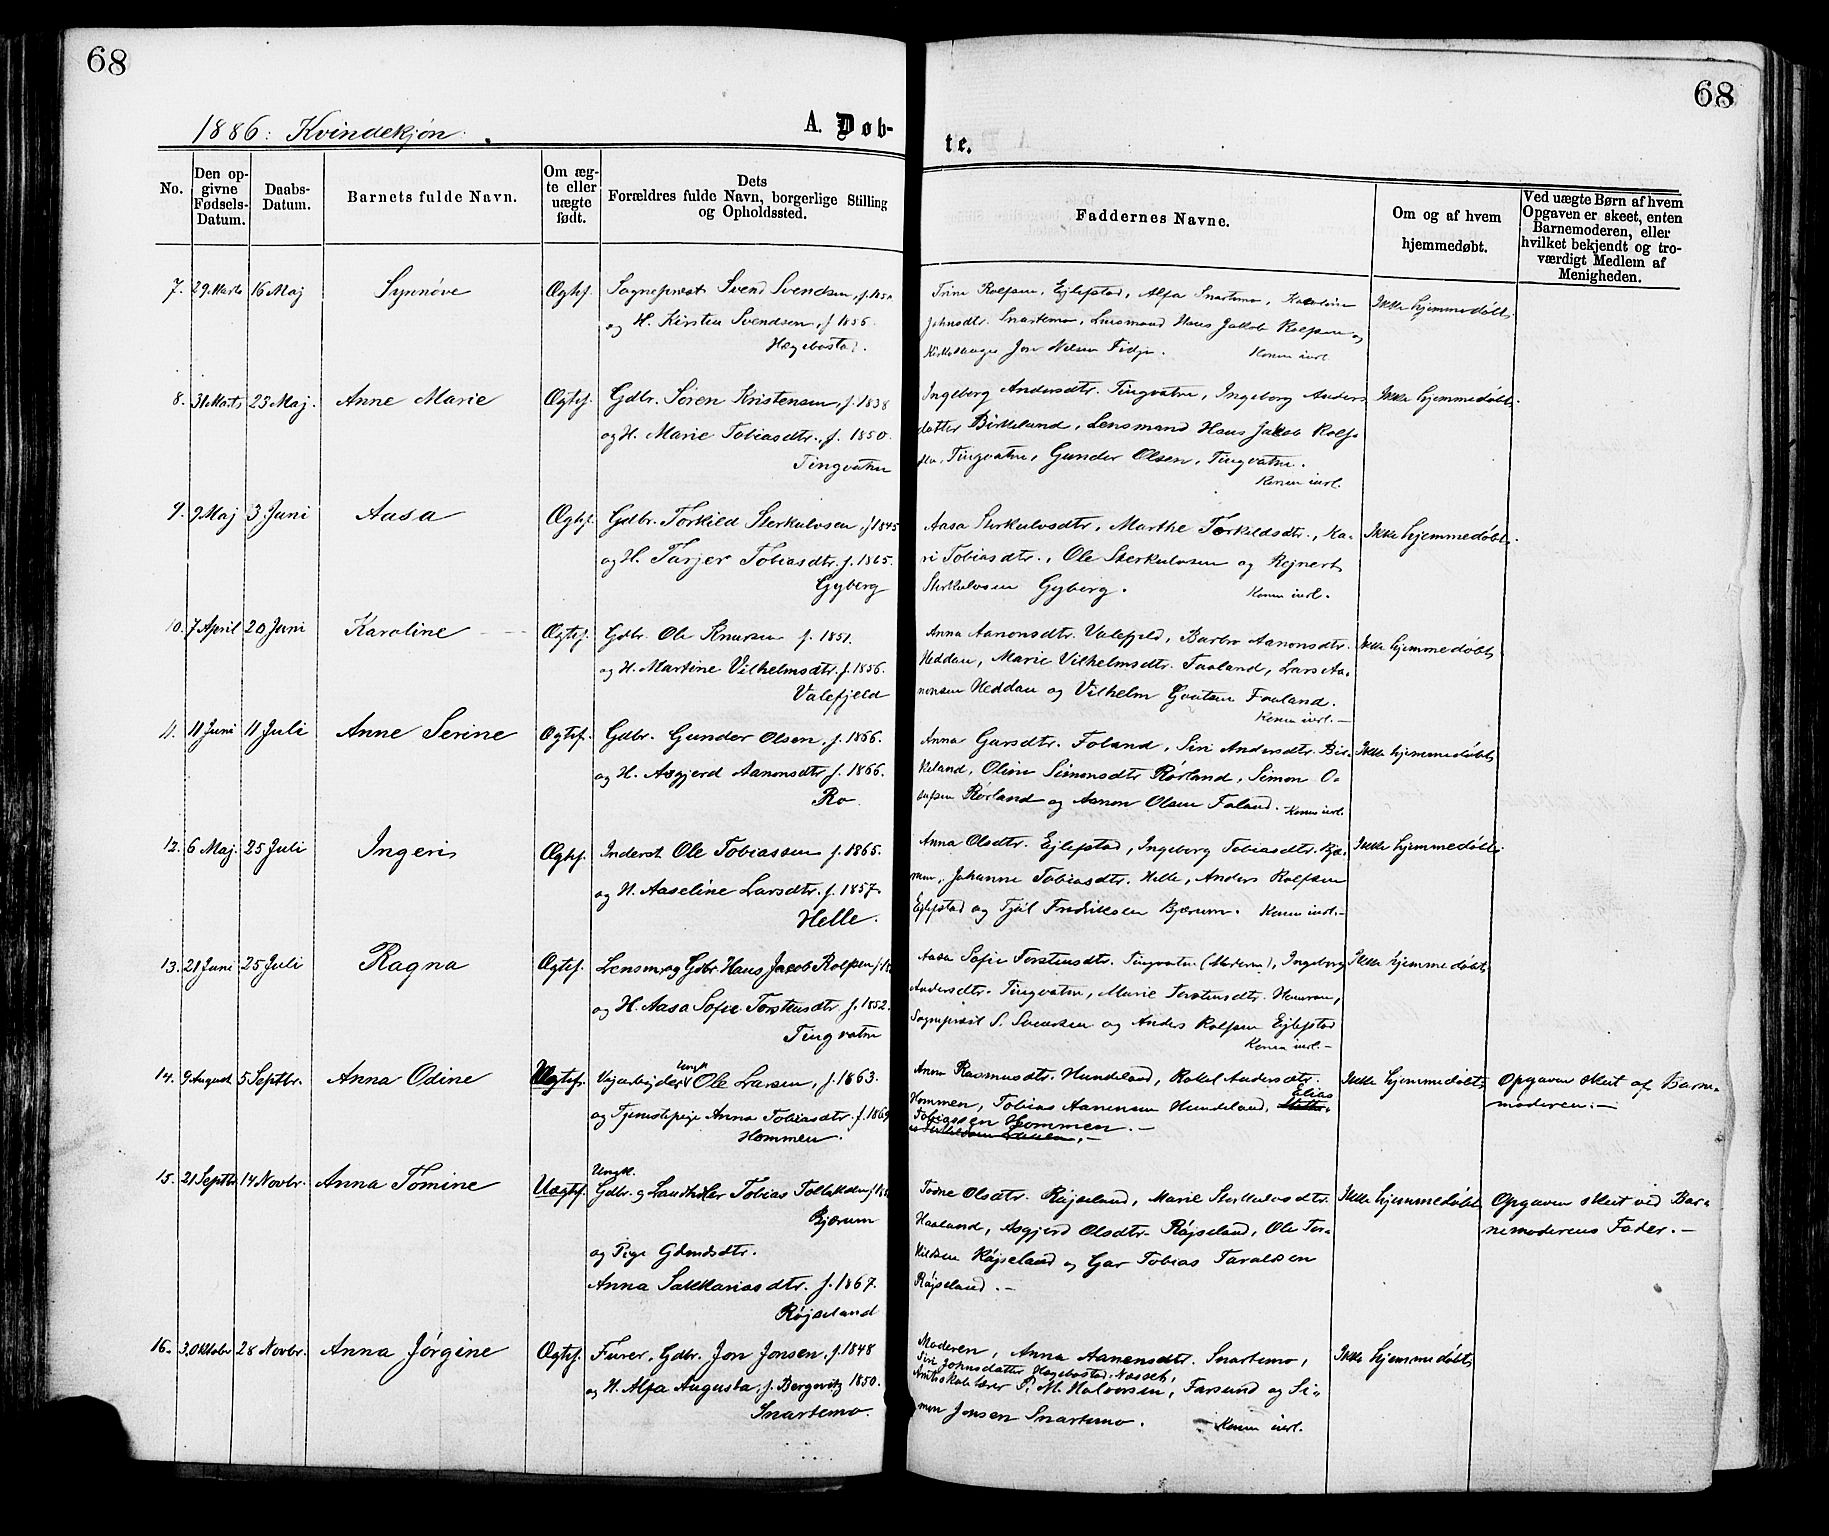 68
68
1886: Kvindekjøn.
A. Døb-
te.
No.
Den op-
givne
Fødsels-
Datum.
Daabs-
Datum.
Barnets fulde Navn.
Om æg-
te eller
uægte
født.
Dets
Forældres fulde Navn, borgerlige Stilling
og Opholdssted.
Faddernes Navne.
Om og af hvem
hjemmedøbt.
Ved uægte Børn af hvem
Opgaven er skeet, enten
Barnemoderen, eller
hvilket bekjendt og tro-
værdigt Medlem af
Menigheden.
7. 29 Marts 16 Maj Synnøve Ægtef. Sognepræst Svend Svendsen, f.
og H. Kirsten Svendsen, f 1856.
Hægebostad.
Trine Rolfsen, Ejlefstad, Alfa Snartemo, Karoline
Johnsdtr. Snartemo, Lensmand Hans Jakob Rolfsen og
Kirkesanger Jon Nilsen Fidje. Konen introl.
Ikke hjemmedøbt.
8. 31 Marts 23 Maj. Anne Marie Ægtef. Gdbr. Søren Kristensen, f. 1838
og H. Marie Tobiasdtr., f. 1850.
Tingvatne
Ingeborg Andersdtr. Tingvatne, Ingeborg Anders
datter Birkeland, Lensmand Hans Jakob Rolf-
sen, Tingvatne, Gunder Olsen, Tingvatne.
Konen introl.
Ikke hjemmedøbt.
9. 9 Maj 3 Juni Aasa Ægtef. Gdbr. Torkild Sterkulvsen f 1845
og H. Tarjer Tobiasdtr. f. 1865.
Gyberg
Aasa Sterkulvsdtr, Marthe Torkildsdtr., Ka-
ri Tobiasdtr., Ole Sterkulvsen og Rejnert
Sterkulvsen Gyberg. Konen introl.
Ikke hjemmedøbt.
10. 7 April 20 Juni Karoline Ægtef. Gdbr. Ole Knutsen f. 1851.
og H. Martine Vilhelmsdtr. f. 1856.
Valefjeld
Anna Aanonsdtr. Valefjeld, Barbro Aanonsdtr.
Heddan, Marie Vilhelmsdtr. Faaland, Lars Aa-
nonsen Heddan og Vilhelm Faaland.
Konen introl.
Ikke hjemmedøbt
11. 11 Juni 11 Juli Anne Serine Ægtef. Gdbr. Gunder Olsen, f. 1866.
og H. Asgjerd Aanonsdtr f. 1866.
Ro.
Anna Garsdtr. Foland, Siri Andersdtr. Bir-
keland, Oline Simonsdtr Rørland, Simon O-
lufsen Rørland og Aanon Olsen Foland. Konen introl.
Ikke hjemmedøbt
12. 6 Maj. 25 Juli Ingeri Ægtef. Inderst Ole Tobiassen f. 1865.
og H. Aaseline Larsdtr. f. 1857.
Helle.
Anna Olsdtr. Ejlefstad, Ingeborg Tobiasdtr. Bjæ-
rum, Johanne Tobiasdtr. Helle, Anders Rolfsen
Ejlefstad og Fredriksen Bjærum. Konen introl.
Ikke hjemmedøbt.
13. 21 Juni 25 Juli Ragna Ægtef. Lensm. og Gdbr Hans Jacob Rolfsen
og H. Aasa Sofie Torstensdtr f. 1852.
Tingvatne
Aasa Sofie Torstensdtr. Tingvatne (Moderen), Ingeborg
Andersdtr. Tingvatne, Marie Torstensdtr.
Sognepræst S. Svendsen og Anders Rolfsen Ejlefstad
Konen introl.
Ikke hjemmedøbt
14. 9 August 5 Septbr. Anna Odine Uægtef. Vejarbejder Ungk. Ole Larsen, f. 1863.
og Tjenestepige Anna Tobiasdtr. f. 1869
Hommen.
Anna Rasmusdtr. Hundeland, Rakel Andersdtr.
Hommen, Tobias Aanensen Hundeland, Elias
Tobiassen Hommen.
Ikke hjemmedøbt
Opgaven skeet af Barne-
moderen.
15. 21 Septbr 14 Novbr. Anna Tomine Uægtef. Ungk.
Gdbr. og Landhdler Tobias Tollaksen
Bjærum
og Pige Gdmdsdtr.
Anna Sakkariasdtr. f. 1867.
Røjseland
Tone Olsdtr. Røjseland, Marie Sterkulvsdtr.
Haaland, Asgjerd Olsdtr. Røjseland, Ole Ter-
kildsen Røjseland og Gar Tobias Taraldsen
Røjseland.
Ikke hjemmedøbt
Opgaven skeet ved Bar-
nemoderens Fader.
16. 3. Oktobr 28 Novbr. Anna Jørgine Ægtef. Furer, Gdbr. Jon Jonsen, f. 1848
og H. Alfa Augusta, f. Bergwitz 1850.
Snartemo.
Moderen, Anna Aanensdtr. Snartemo,
Siri Johnsdatter Hægebostad, Nasset,
Amtsskolelærer P. M. Halvorsen, Farsund og Si-
mon Jonsen Snartemo. Konen introl.
Ikke hjemmedøbt